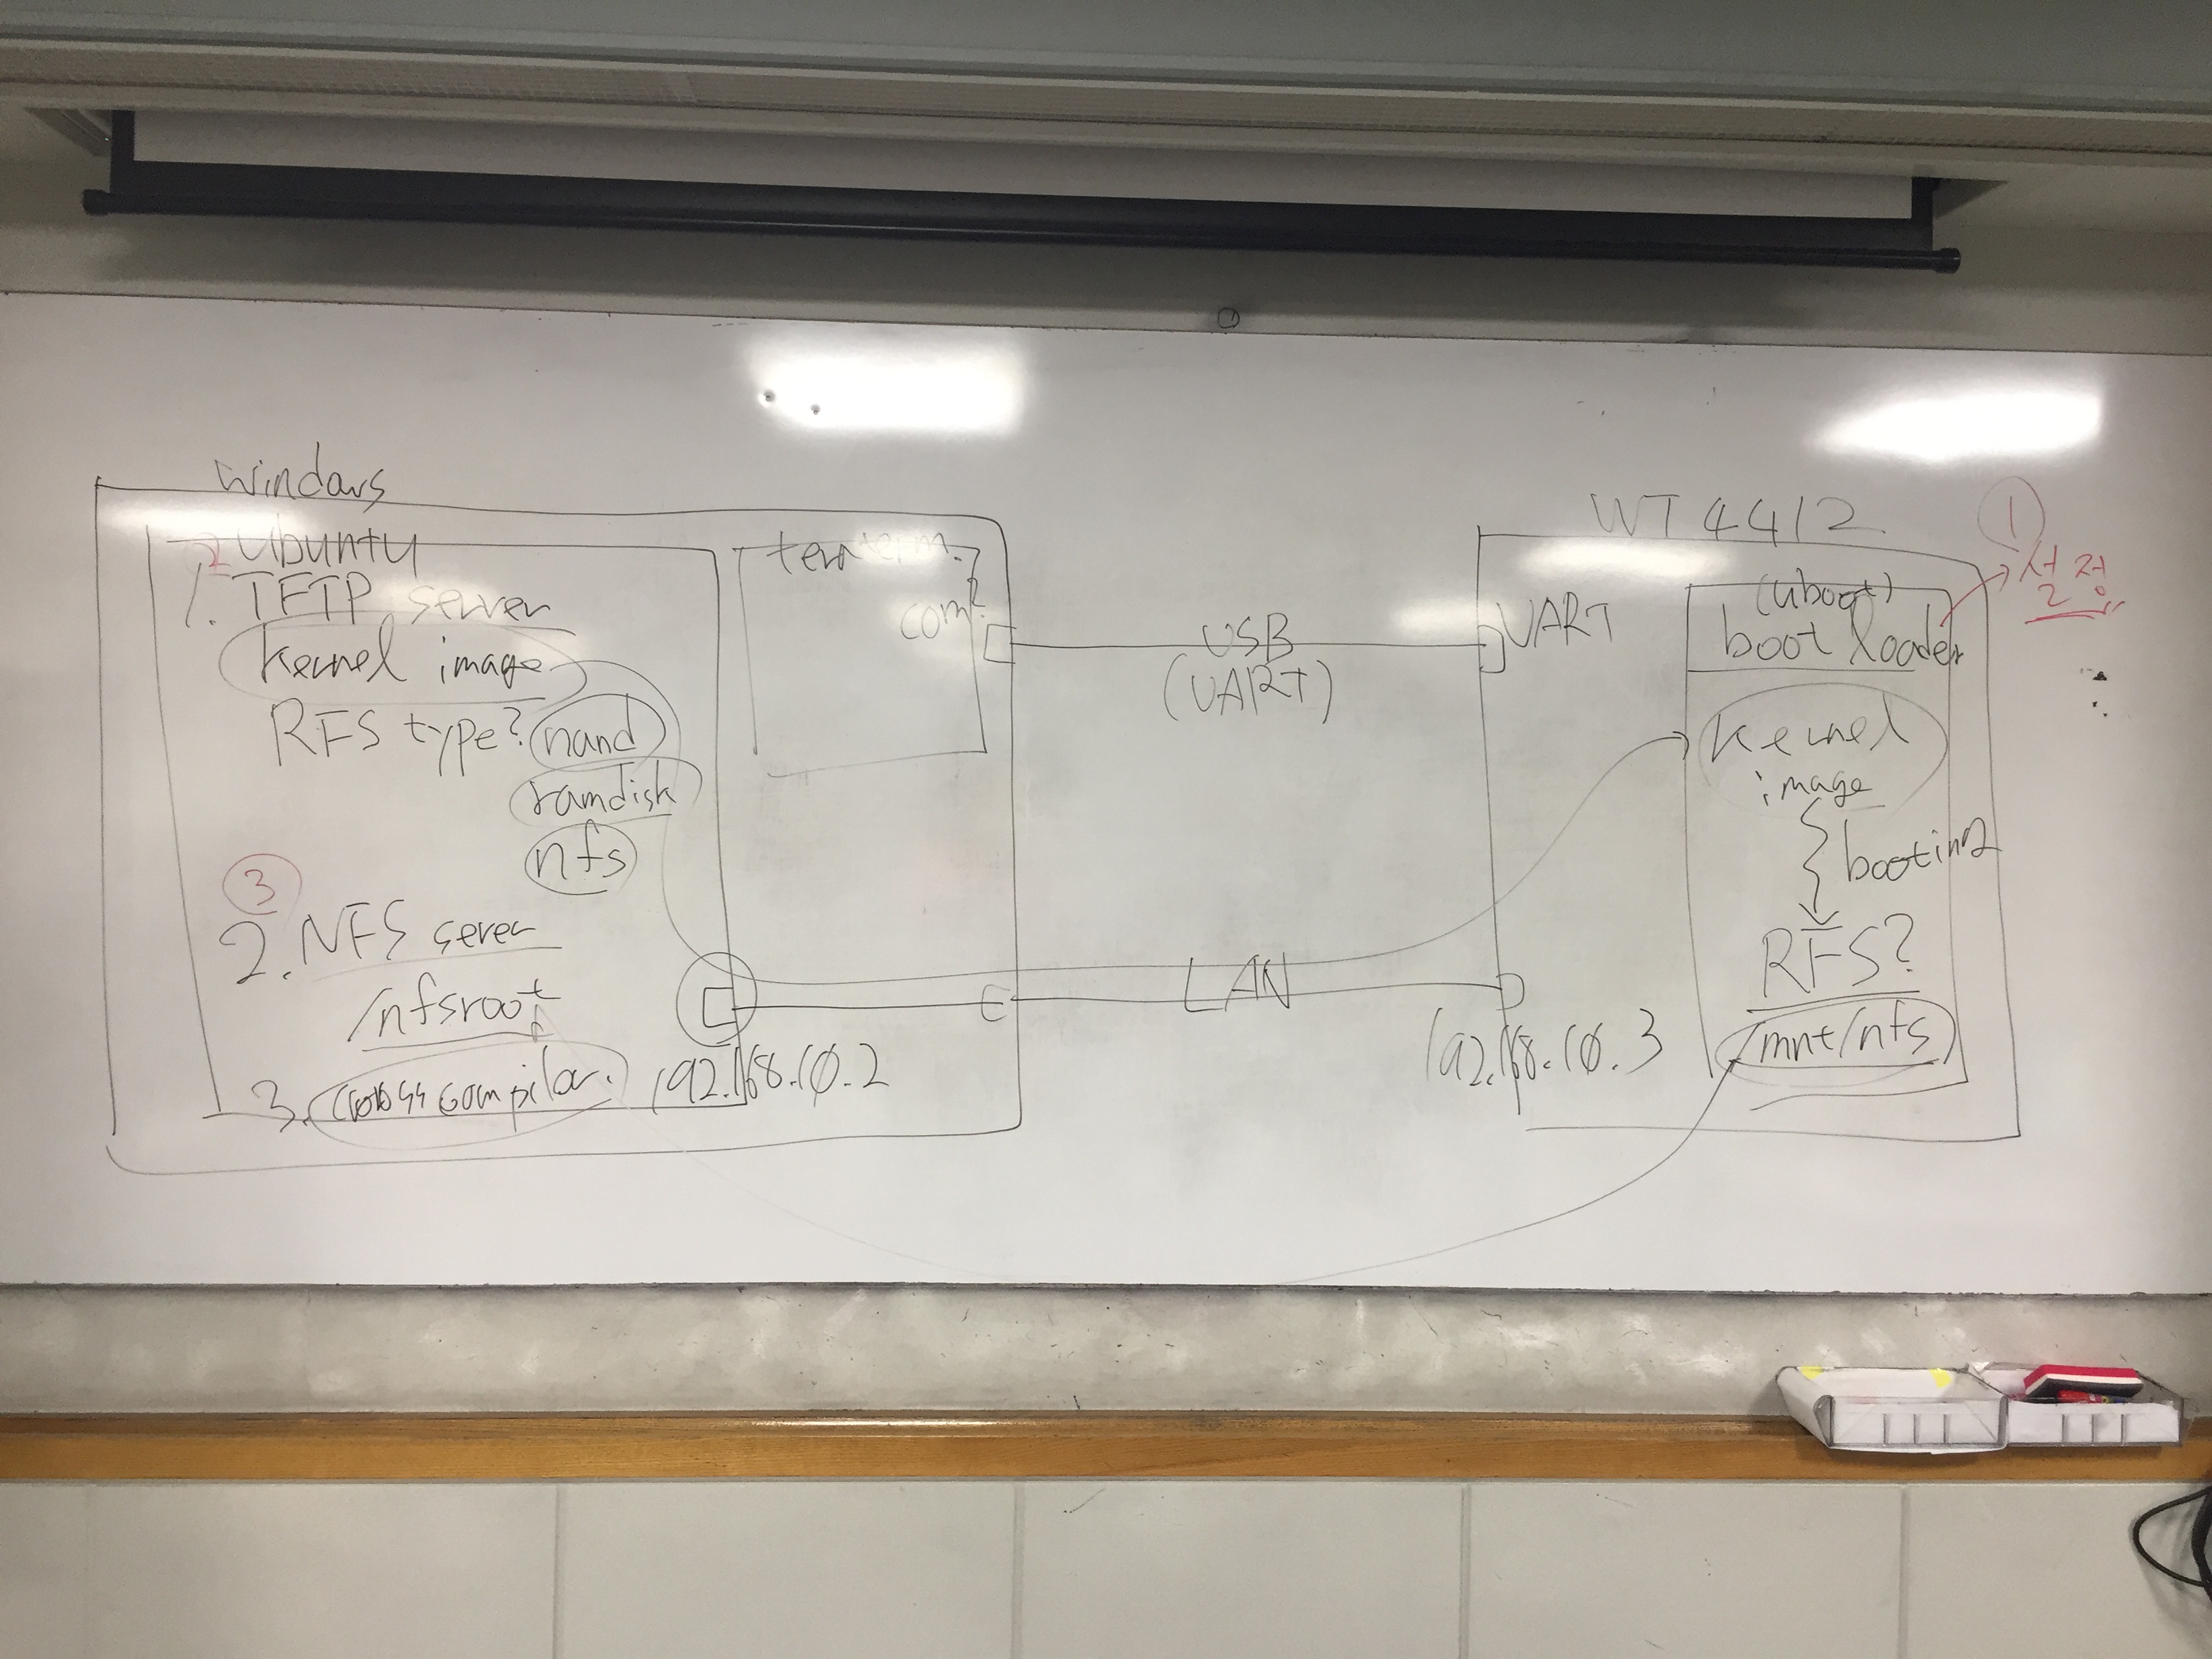 Windows
Ubuntu
2
1. TFTP server
kernel image
RFS type? nand
ramdisk
nfs
3
2. NFS server
/nfsroot
3. cross compiler.
192.168.10.2
teraterm.
com?
USB
(UART)
LAN
WT4412
UART
(uboot)
boot loader
kernel
image
booting
RFS?
/mnt/nfs
192.168.10.3
1
설정